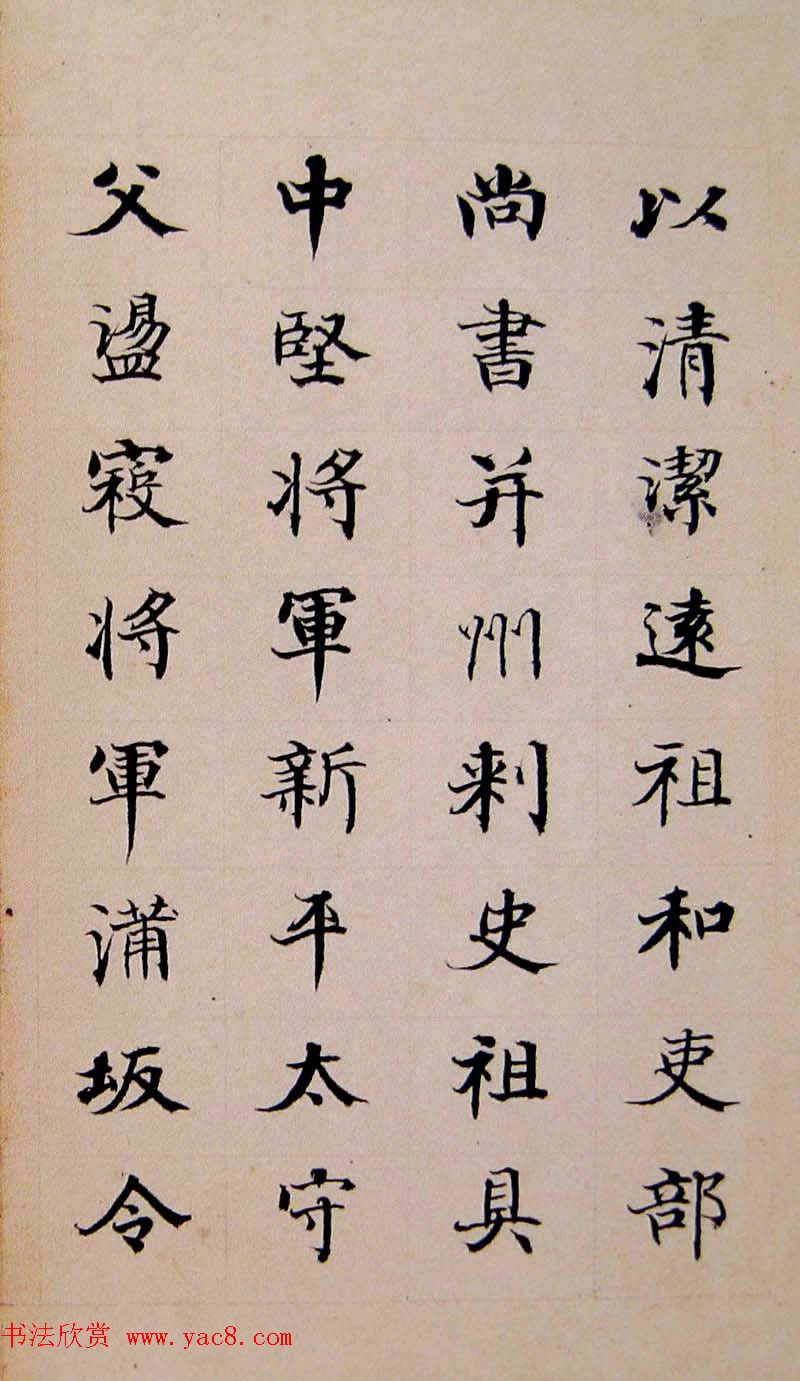 以清潔遠祖和吏部
尚書并州刺史祖具
中堅將軍新平太守
父盪寇將軍蒲坂令
书法欣赏 www.yac8.com